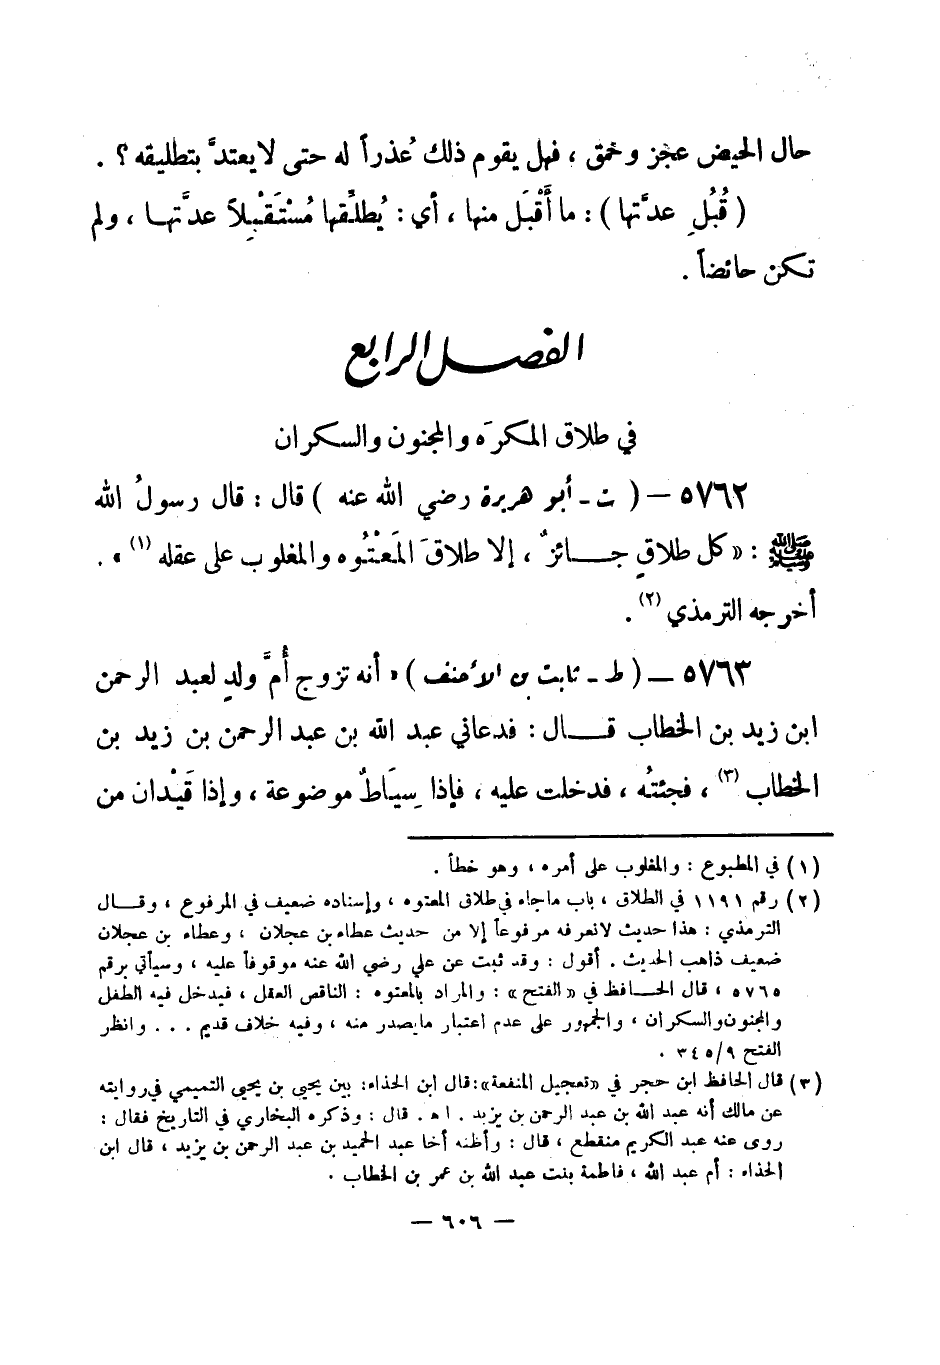 حال الحيض عجز وحمق ، فهل يقوم ذلك عُذراً له حتى لا يعتدَّ بتطليقه ؟ .
( قُبُلِ عدَّتها ) : ما أَقْبَل منها ، أي : يُطلِّقها مُسْتَقْبِلاً عدَّتهـا ، ولم
تكن حائضاً .
الفصل الرابع
في طلاق المكرَه والمجنون والسكران
٥٧٦٢ – ( ت - أبو هريرة رضي الله عنه ) قال : قال رسولُ الله
ﷺ : « كل طلاقٍ جـــائزٌ ، إلا طلاقَ المَعْتُوه والمغلوب على عقله (١) » .
أخرجه الترمذي (٢) .
٥٧٦٣ – ( ط - ثابت بن الأحنف ) « أنه تزوج أُمَّ ولدٍ لعبد الرحمن
ابن زيد بن الخطاب قــــال : فدعاني عبد الله بن عبد الرحمن بن زيد بن
الخطاب (٣) ، فجئتُه ، فدخلت عليه ، فإذا سِيَاطٌ موضوعة ، وإذا قَيْدان من
(١) في المطبوع : والمغلوب على أمره ، وهو خطأ .
(٢) رقم ١١٩١ في الطلاق ، باب ماجاء في طلاق المعتوه ، وإسناده ضعيف في المرفوع ، وقـــال
الترمذي : هذا حديث لانعرفه مرفوعاً إلا من حديث عطاء بن عجلان ، وعطاء بن عجلان
ضعيف ذاهب الحديث . أقول : وقد ثبت عن علي رضي الله عنه موقوفاً عليه ، وسيأتي برقم
٥٧٦٥ ، قال الحـــافظ في « الفتح » : والمراد بالمعتوه : الناقص العقل ، فيدخل فيه الطفل
والمجنون والسكران ، والجمهور على عدم اعتبار مايصدر منه ، وفيه خلاف قديم . . . وانظر
الفتح ٣٤٥/٩ .
(٣) قال الحافظ ابن حجر في « تعجيل المنفعة »: قال ابن الحذاء: بين يحيى بن يحيى التميمي في روايته
عن مالك أنه عبد الله بن عبد الرحمن بن يزيد . اهـ . قال : وذكره البخاري في التاريخ فقال :
روى عنه عبد الكريم منقطع ، قال : وأظنه أخا عبد الحميد بن عبد الرحمن بن يزيد ، قال ابن
الحذاء : أم عبد الله ، فاطمة بنت عبد الله بن عمر بن الخطاب .
— ٦٠٦ —